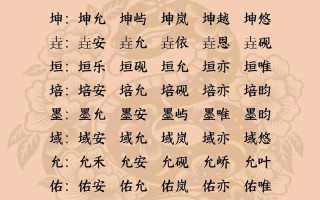 坤：坤允 坤屿 坤岚 坤越 坤悠
垚：垚安 垚允 垚依 垚恩 垚砚
垣：垣乐 垣砚 垣允 垣亦 垣唯
培：培安 培允 培砚 培亦 培昀
墨：墨允 墨安 墨屿 墨唯 墨昀
域：域安 域允 域岚 域亦 域悠
允：允禾 允安 允砚 允峤 允叶
佑：佑安 佑允 佑岚 佑亦 佑唯